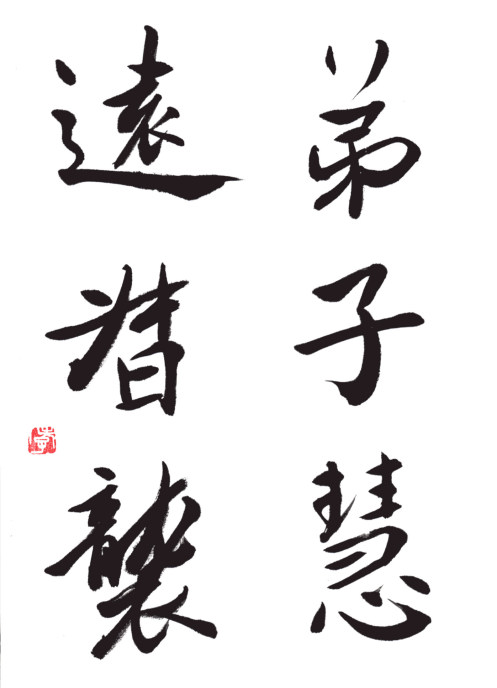 弟子慧
遠替襲